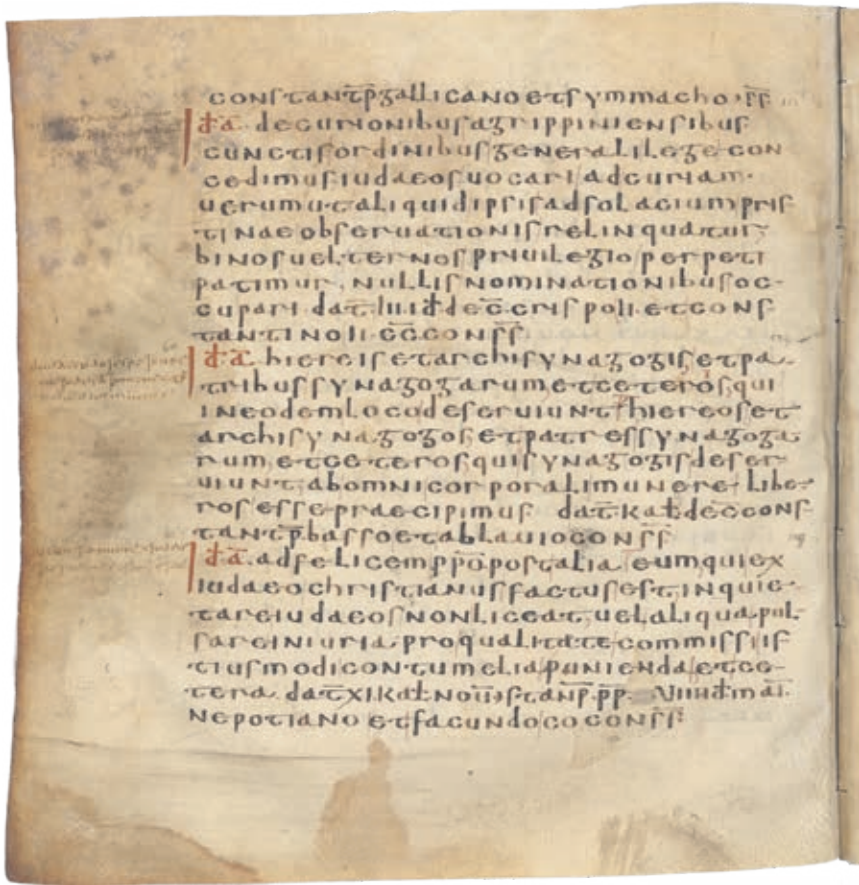 constant̄p̄gallicanoetsymmacho·s̄s̄
id̄ā decurionibusagrippiniensibus
cunctisordinibusgeneralilegecon
cedimusiudaeosuocariadcuriam·
uerumutaliquidipsisadsolaciumpris
tinaeobseruationisrelinquatur
binosuelternospriuilegioperpeti
patimur nullisnominationibusoc
cupari dat̄ iiiid̄dec̄crispoii etcons
tantinoii c̄c̄cons̄s̄
id̄ā hiereisetarchisynagogisetpa
tribussynagogarumetceterosqui
ineodemlocodeseruiunt hiereoset
archisynagogosetpatressynagoga
rumetceterosquisynagogisdeser
uiunt abomnicorporalimunere libe
rosessepraecipimus dat̄kal̄dec̄cons
tant̄p̄bassoetablauiocons̄s̄
id̄ā adfelicemp̄p̄ōpostalia eumquiex
iudaeochristianusfactusest inquie
tareiudaeosnonliceat uelaliquapul
sareiniuria proqualitatecommissiis
tiusmodicontumeliapuniendaetce
tera dat̄xikal̄nou̅ stanp̄ p̄p̄ uiiiid̄mai
nepotianoetfacundococons̄s̄